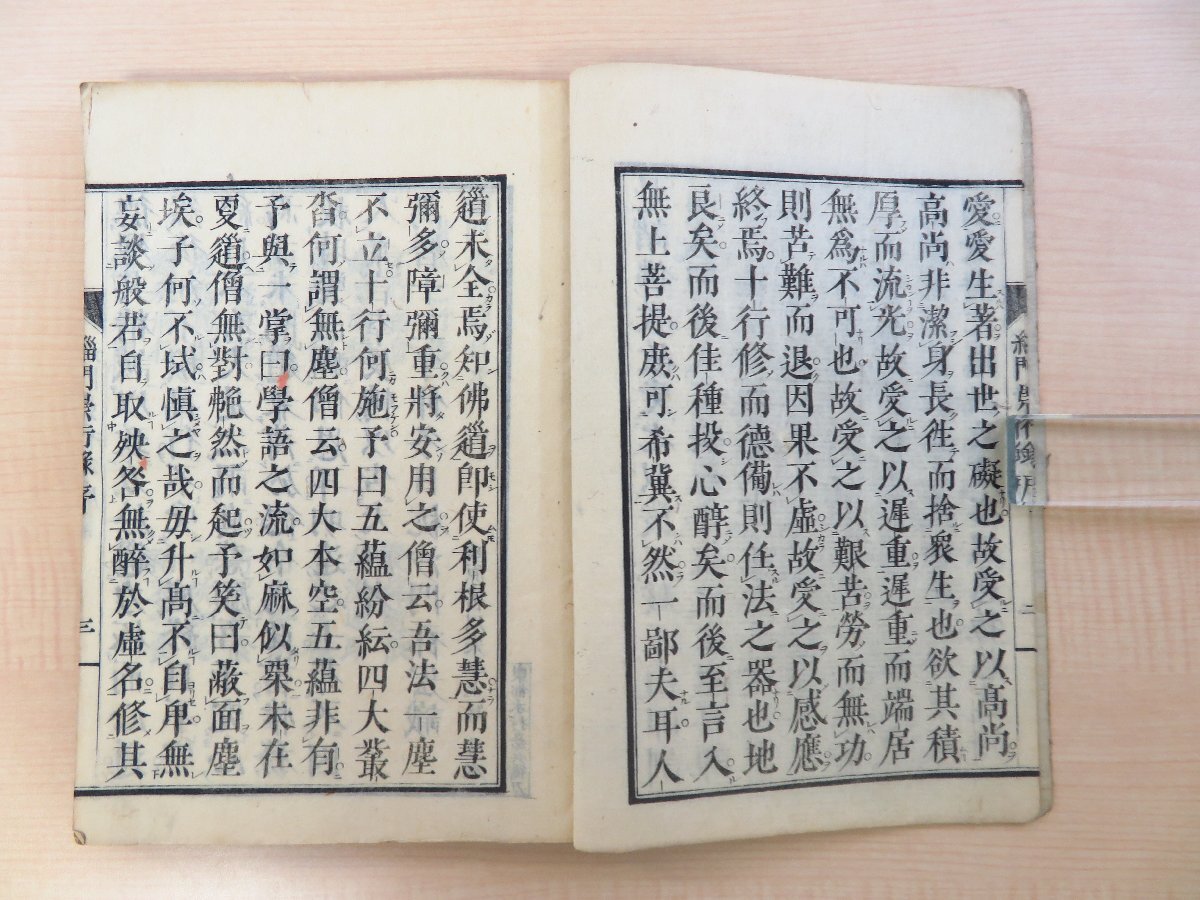 愛愛生著出世之礙也故受之以髙尚
高尚非潔身長徃而捨衆生也欲其積
厚而流光故愛之以遲重遲重而端居
無爲不可也故受之以艱苦勞而無功
則苦難而退因果不虛故受之以感應
終焉十行修而德備則任法之器也地
良矣而後佳種投心醇矣而後至言入
無上菩提庶可希冀不然一鄙夫耳人
道未全焉知佛道即使利根多慧而慧
彌多障彌重將安用之僧云吾法一塵
不立十行何施予曰五蘊紛紜四大叢
沓何謂無塵僧云四大本空五蘊非有
予與一掌曰學語之流如麻似粟未在
更道僧無對艴然而起予笑曰蔽面塵
埃子何不拭慎之哉毋升髙不自卑無
妄談般若自取殃咎無醉於虛名修其
緇門崇行錄序
三